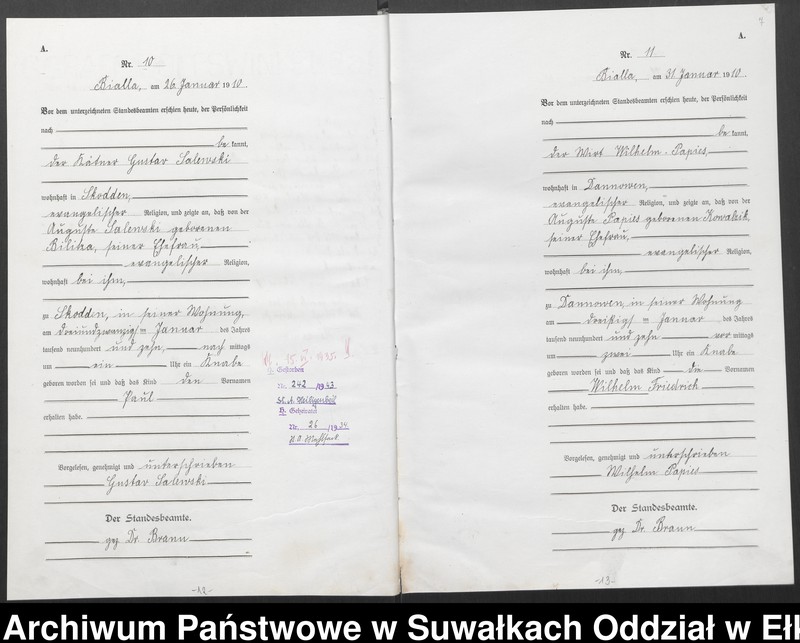 A.
Nr. 10
Bialla, am 26. Januar 1910.
Vor dem unterzeichneten Standesbeamten erschien heute, der Persönlichkeit
nach
be kannt,
der Kätner Gustav Salewski
wohnhaft in Skodden,
evangelischer Religion, und zeigte an, daß von der
Auguste Salewski geborenen
Bilitza, seiner Ehefrau,
evangelischer Religion,
wohnhaft bei ihm,
zu Skodden, in seiner Wohnung,
am dreiundzwanzigsten Januar des Jahres
tausend neunhundert und zehn, nach mittags
um ein Uhr ein Knabe
geboren worden sei und daß das Kind den Vornamen
Paul
erhalten habe.
Vorgelesen, genehmigt und unterschrieben
Gustav Salewski
Der Standesbeamte.
gez Dr. Braun
-12-
Gestorben
Nr. 242 /1943
St. A. Heiligenbeil
Geheiratet
Nr. 26 /1934
7
A.
Nr. 11
Bialla, am 31. Januar 1910.
Vor dem unterzeichneten Standesbeamten erschien heute, der Persönlichkeit
nach
be kannt,
der Wirt Wilhelm Papies,
wohnhaft in Dannowen,
evangelischer Religion, und zeigte an, daß von der
Auguste Papies geborenen Kowalzik,
seiner Ehefrau,
evangelischer Religion,
wohnhaft bei ihm,
zu Dannowen, in seiner Wohnung
am dreißigsten Januar des Jahres
tausend neunhundert und zehn vor mittags
um zwei Uhr ein Knabe
geboren worden sei und daß das Kind die Vornamen
Wilhelm Friedrich
erhalten habe.
Vorgelesen, genehmigt und unterschrieben
Wilhelm Papies
Der Standesbeamte.
gez Dr. Braun
-13-
Archiwum Państwowe w Suwałkach Oddział w Eł